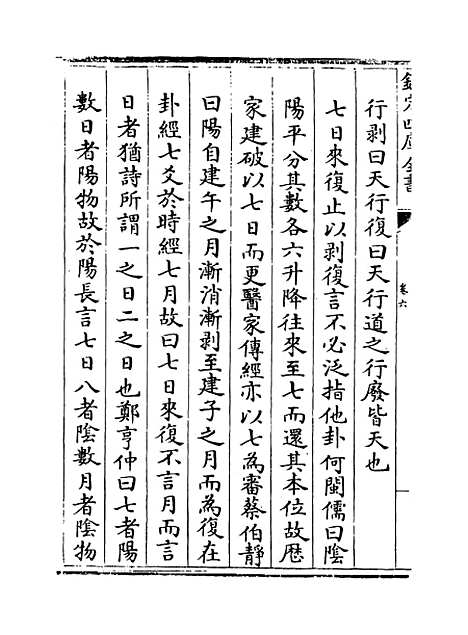 欽定四庫全書
卷六
行剥曰天行復曰天行道之行廢皆天也
七日來復止以剥復言不必泛指他卦何閩儒曰陰
陽平分其數各六升降往來至七而還其本位故厯
家建破以七日而更醫家傳經亦以七為審蔡伯靜
曰陽自建午之月漸消漸剥至建子之月而為復在
卦經七爻於時經七月故曰七日來復不言月而言
日者猶詩所謂一之日二之日也鄭亨仲曰七者陽
數日者陽物故於陽長言七日八者陰數月者陰物